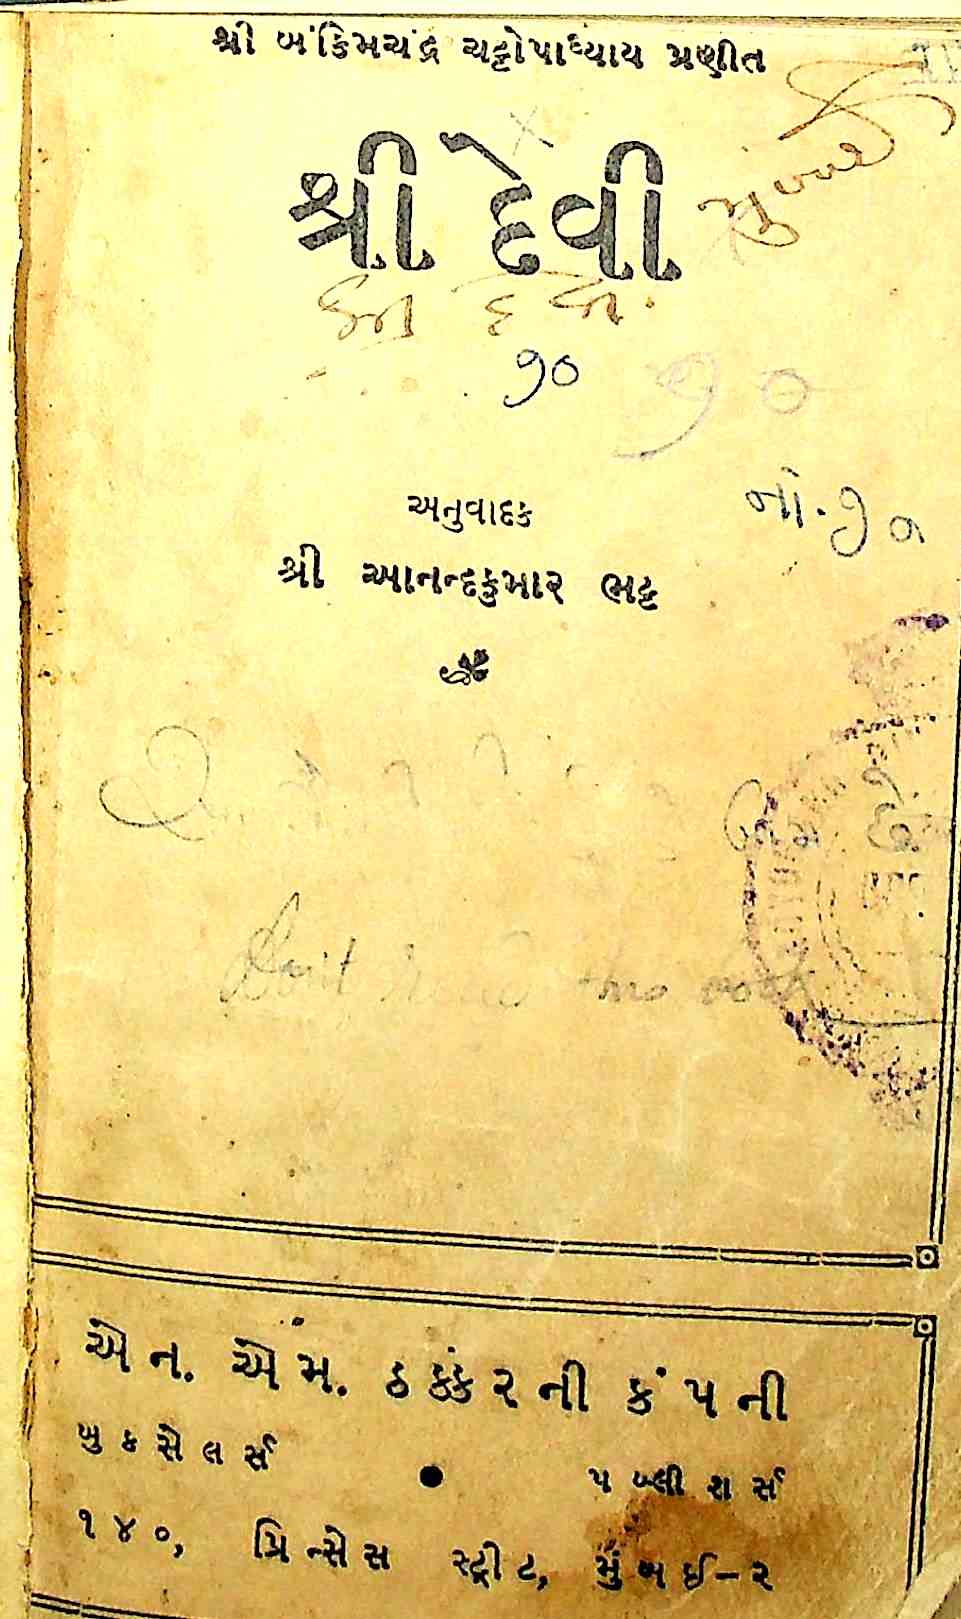 શ્રી બંકિમચંદ્ર ચટ્ટોપાધ્યાય પ્રણીત
શ્રી દેવી
૧૦
૧૦
અનુવાદક
નો. ૧૦
શ્રી આનન્દકુમાર ભટ્ટ
Don't read this book
એન. એમ. ઠક્કરની કંપની
બુકસેલર્સ • પબ્લીશર્સ
૧૪૦, પ્રિન્સેસ સ્ટ્રીટ, મુંબઈ–૨